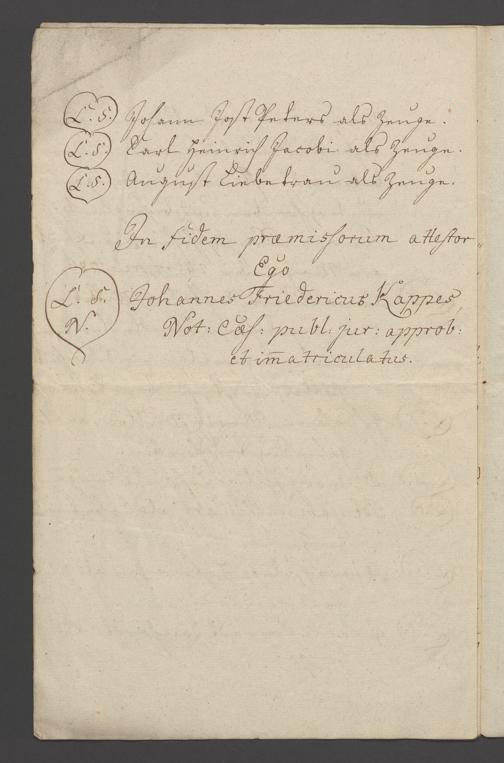 L. S. Johann Jost Peters als Zeuge.
L. S. Carl Heinrich Jacobi als Zeuge.
L. S. August Liebetrau als Zeuge.
In fidem præmissorum attestor
Ego
L. S. Johannes Fridericus Kappes,
N. Not: Cæs: publ: jur: approb:
et im̄atriculatus.